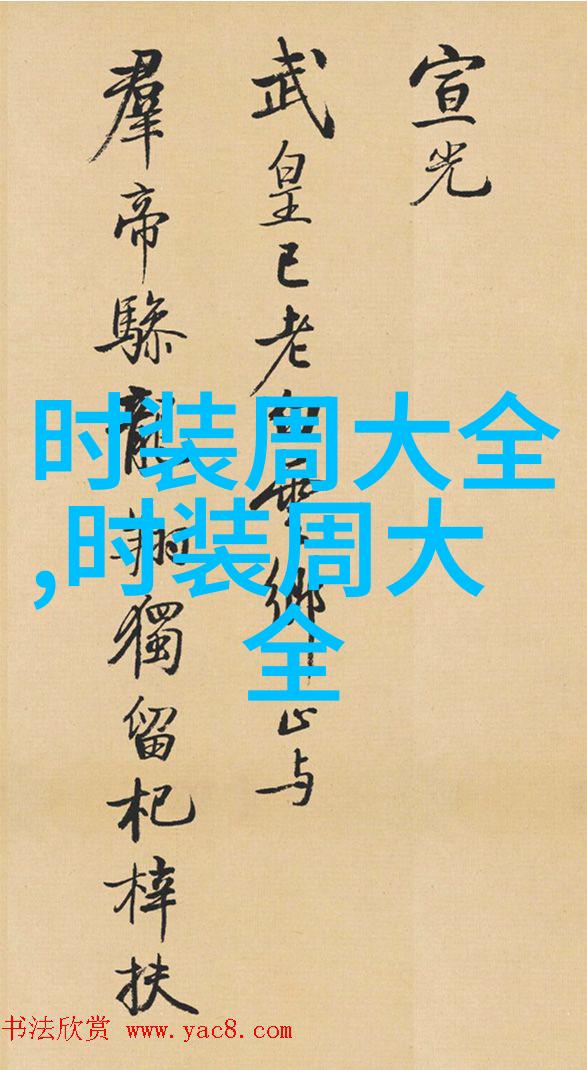 宣光
武皇已老白雲鄉正与
羣帝驂龍翔獨留杞梓扶
时装周大全
,时装周大
全
书法欣赏 www.yac8.com